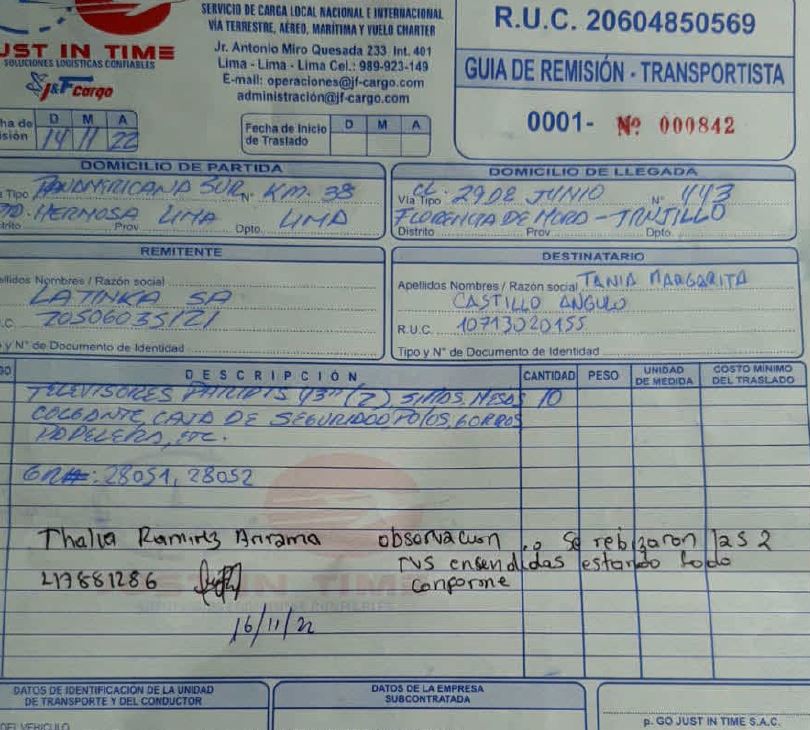 SERVICIO DE CARGA LOCAL NACIONAL E INTERNACIONAL
VÍA TERRESTRE, AÉREO, MARÍTIMA Y VUELO CHARTER
UST IN TIME
SOLUCIONES LOGISTICAS CONFIABLES
J&F Cargo
Jr. Antonio Miro Quesada 233 Int. 401
Lima - Lima - Lima Cel.: 989-923-149
E-mail: operaciones@jf-cargo.com
administración@jf-cargo.com
R.U.C. 20604850569
GUIA DE REMISIÓN - TRANSPORTISTA
0001- Nº 000842
ha de
isión
D M A
14 11 22
Fecha de Inicio
de Traslado
D M A
DOMICILIO DE PARTIDA
Tipo PANAMERICANA SUR Nº KM. 38
HERMOSA LIMA LIMA
trito Prov Dpto.
DOMICILIO DE LLEGADA
Vía Tipo CL 29 DE JUNIO Nº 443
FLORENCIA DE MORO - TRUJILLO
Distrito Prov Dpto.
REMITENTE
ellidos Nombres / Razón social
LATINKA SA
.C. 20506035121
o y N° de Documento de Identidad
DESTINATARIO
Apellidos Nombres / Razón social TANIA MARGARITA
CASTILLO ANGULO
R.U.C. 10713020155
Tipo y N° de Documento de Identidad
GO DESCRIPCIÓN CANTIDAD PESO UNIDAD DE MEDIDA COSTO MÍNIMO DEL TRASLADO
TELEVISORES 43" (2) MESAS 10
COLGANTE, CAJA DE SEGURIDAD POLOS, GORROS
PAPELERA, ETC.
GR#: 28051, 28052
Thalia Ramirez Arirama observacion .o Se rebizaron las 2
tvs ensendidas estando todo
conforme
47881286
16/11/22
JUST IN TIME
SOLUCIONES LOGISTICAS CONFIABLES
DATOS DE IDENTIFICACIÓN DE LA UNIDAD
DE TRANSPORTE Y DEL CONDUCTOR
DATOS DE LA EMPRESA
SUBCONTRATADA
DEL VEHICULO
p. GO JUST IN TIME S.A.C.